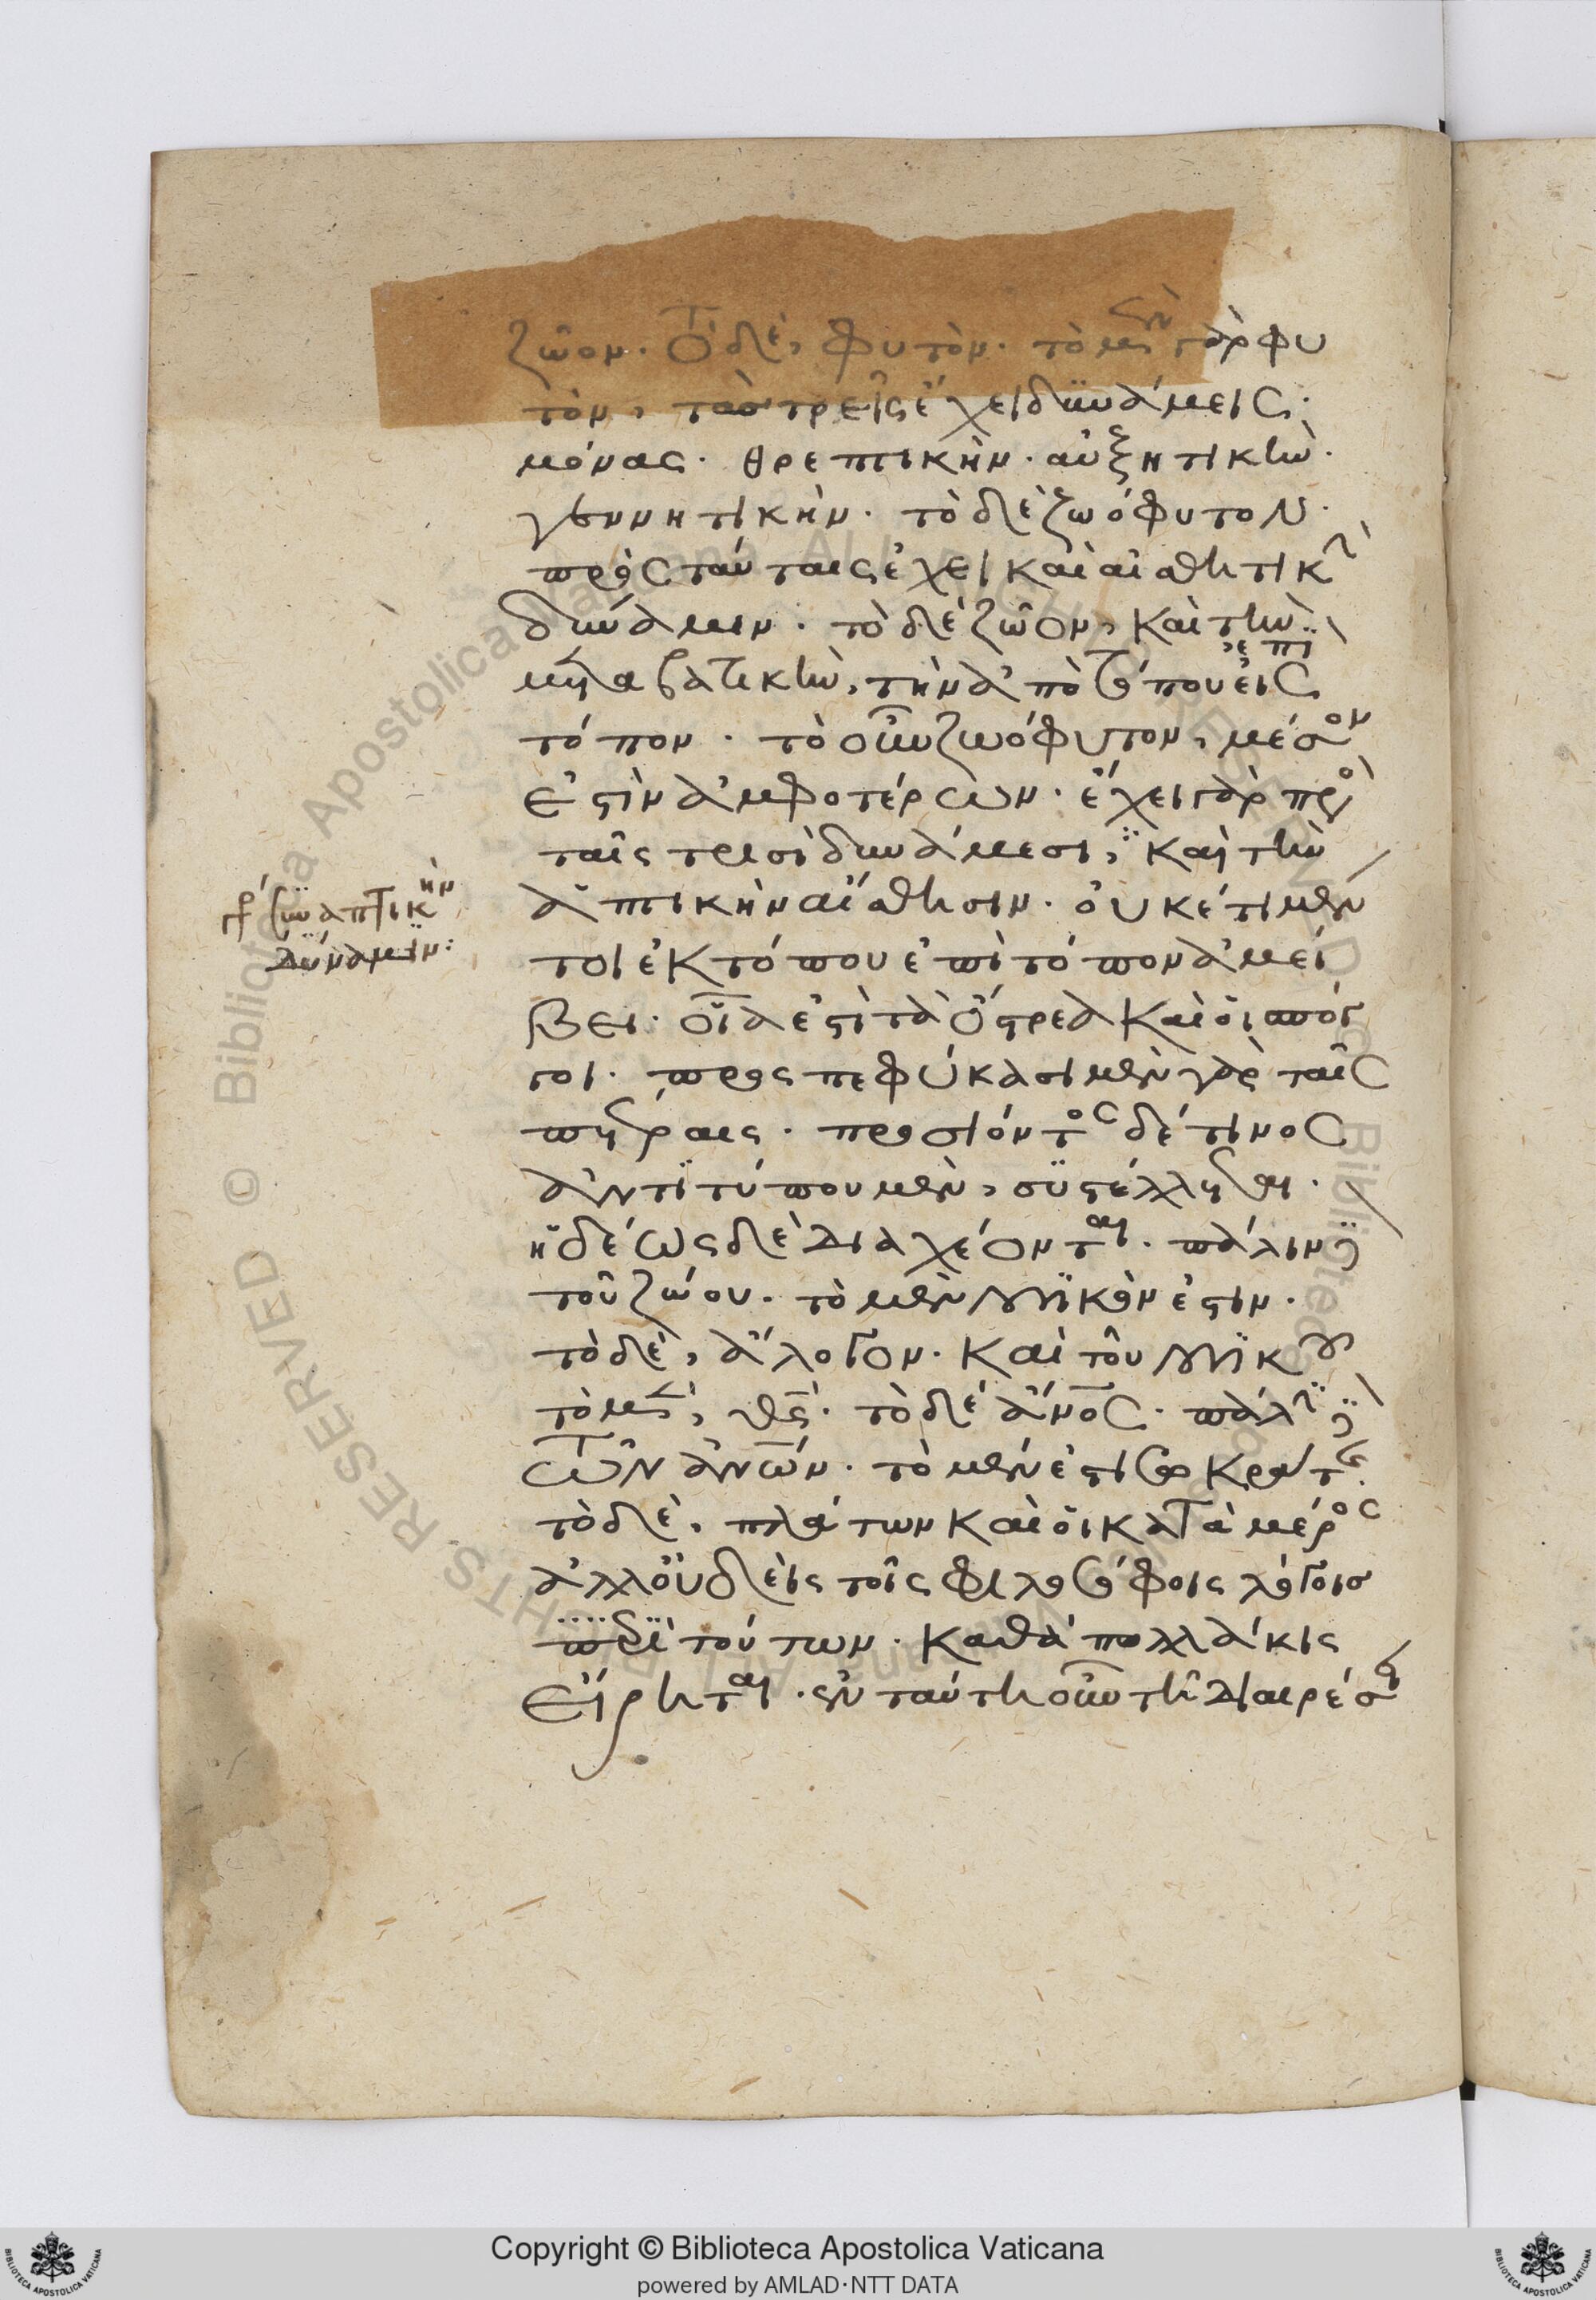 ζῶον. τὸ δὲ, φυτὸν. τὸ μὲν γὰρ φυ
τὸν, τὰσ τρεῖς ἔχει δϋνάμεις·
μόνας. θρεπτικὴν. αὐξητικὴν.
γεννητικὴν. τὸ δὲ ζωόφυτον.
πρὸς ταύταις ἔχει καὶ αἰσθητικὴν
δύναμιν. τὸ δὲ ζῶον, καὶ τὴν
μεταβατικὴν, τὴν ἀπὸ τόπου εἰς
ἐπὶ
τόπον. τὸ οὖν ζωόφυτον, μέσον
ἐστὶν ἀμφοτέρων. ἔχει γὰρ πρὸς
ταῖς τρισὶ δυνάμεσι, καὶ τὴν
ἁπτικὴν αἴσθησιν. οὐκέτι μέν
τοι ἐκ τόπου ἐπὶ τόπον ἀμεί
βει. οἷα ἐστὶ τὰ ὄστρεα καὶ οἱ σπόγ
γοι. προσπεφύκασι μὲν γὰρ ταῖς
πέτραις. προσιόντος δέ τινος
ἀντϊτύπου μὲν, συστέλλεται.
ἡδέως δὲ διαχέονται. πάλιν
τοῦ ζώου. τὸ μὲν λογϊκόν ἐστιν.
τὸ δὲ, ἄλογον. καὶ τοῦ λογϊκοῦ
τὸ μὲν, θς. τὸ δὲ ἄνος. πάλιν
τῶν ἀνῶν. τὸ μέν ἐστι σωκράτης.
τὸ δὲ, πλάτων καὶ οἱ κατὰ μέρος
ἀλλ' οὐδεὶς τοῖς φιλοσόφοις λόγοισ
περὶ τούτων. καθὰ πολλάκις
εἴρηται. ἐν ταύτη οὖν τῆ διαιρέσει
γρ συναπτικὴν
δύναμιν:
Copyright © Biblioteca Apostolica Vaticana
powered by AMLAD·NTT DATA